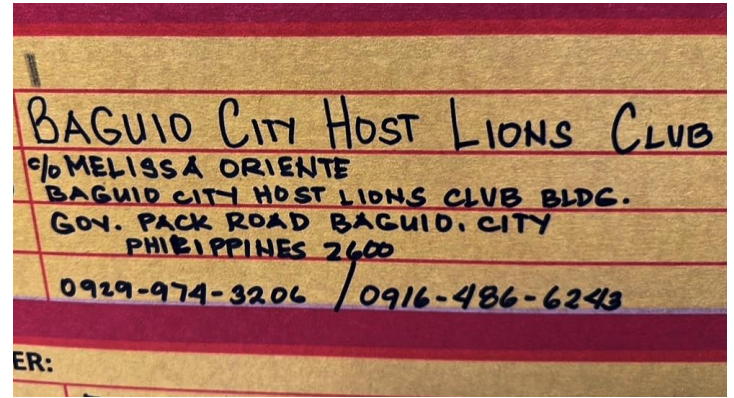 BAGUIO CITY HOST LIONS CLUB
c/o MELISSA ORIENTE
BAGUIO CITY HOST LIONS CLUB BLDG.
GOV. PACK ROAD BAGUIO. CITY
PHILIPPINES 2600
0929-974-3206 / 0916-486-6243
ER: